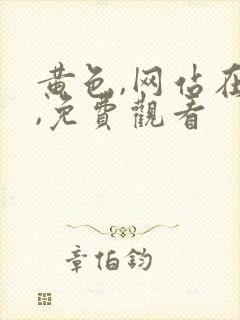 黄色,网佔在
,免費觀看
章伯鈞